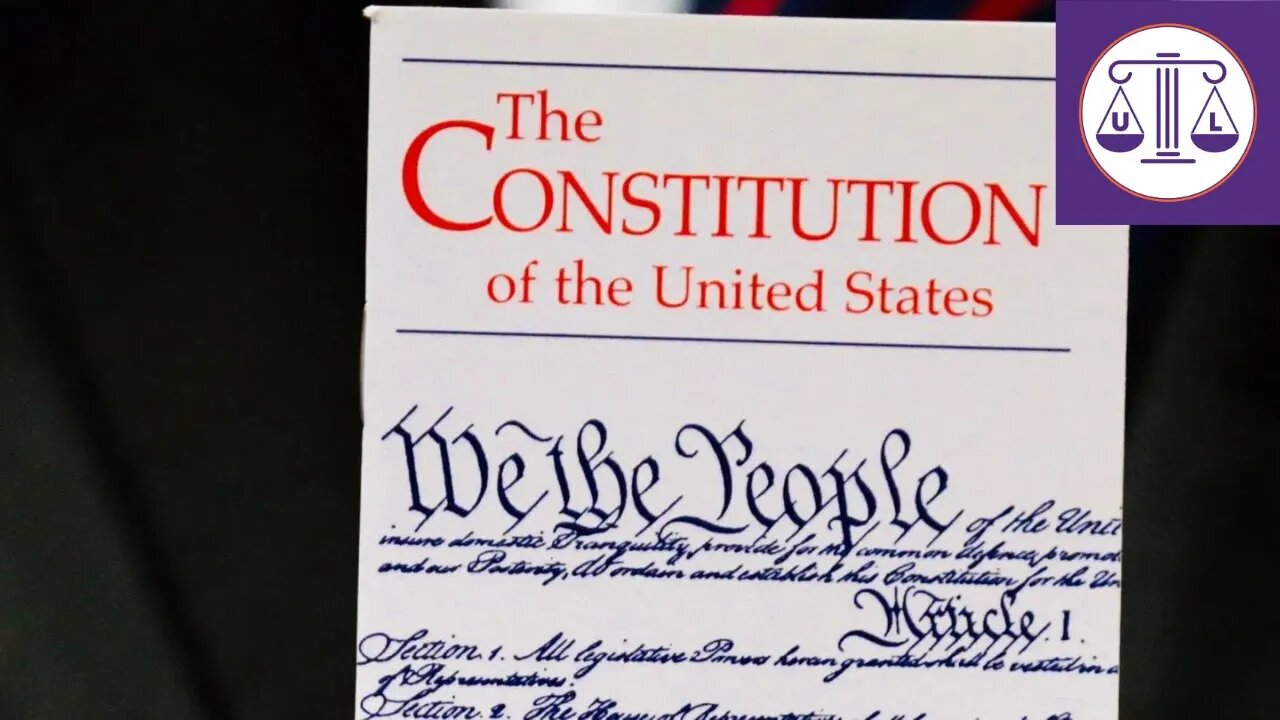 The
CONSTITUTION
of the United States
U L
We the People of the Unit
insure domestic Tranquility, provide for the common defence, promot
and our Posterity, do ordain and establish this Constitution for the Un
Article. I.
Section. 1. All legislative Powers herein granted shall be vested in a
of Representatives.
Section. 2. The House of Representatives